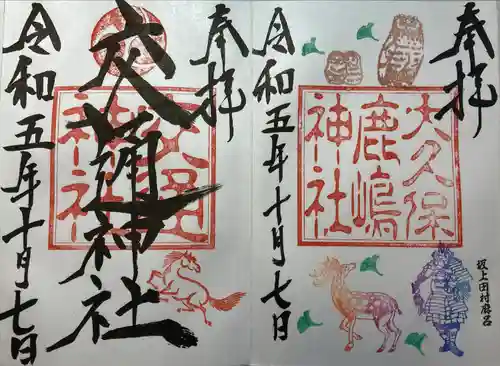 奉拝
大久保
鹿嶋
神社
坂上田村麿呂
令和五年十月七日
奉拝
交通神社
令和五年十月七日